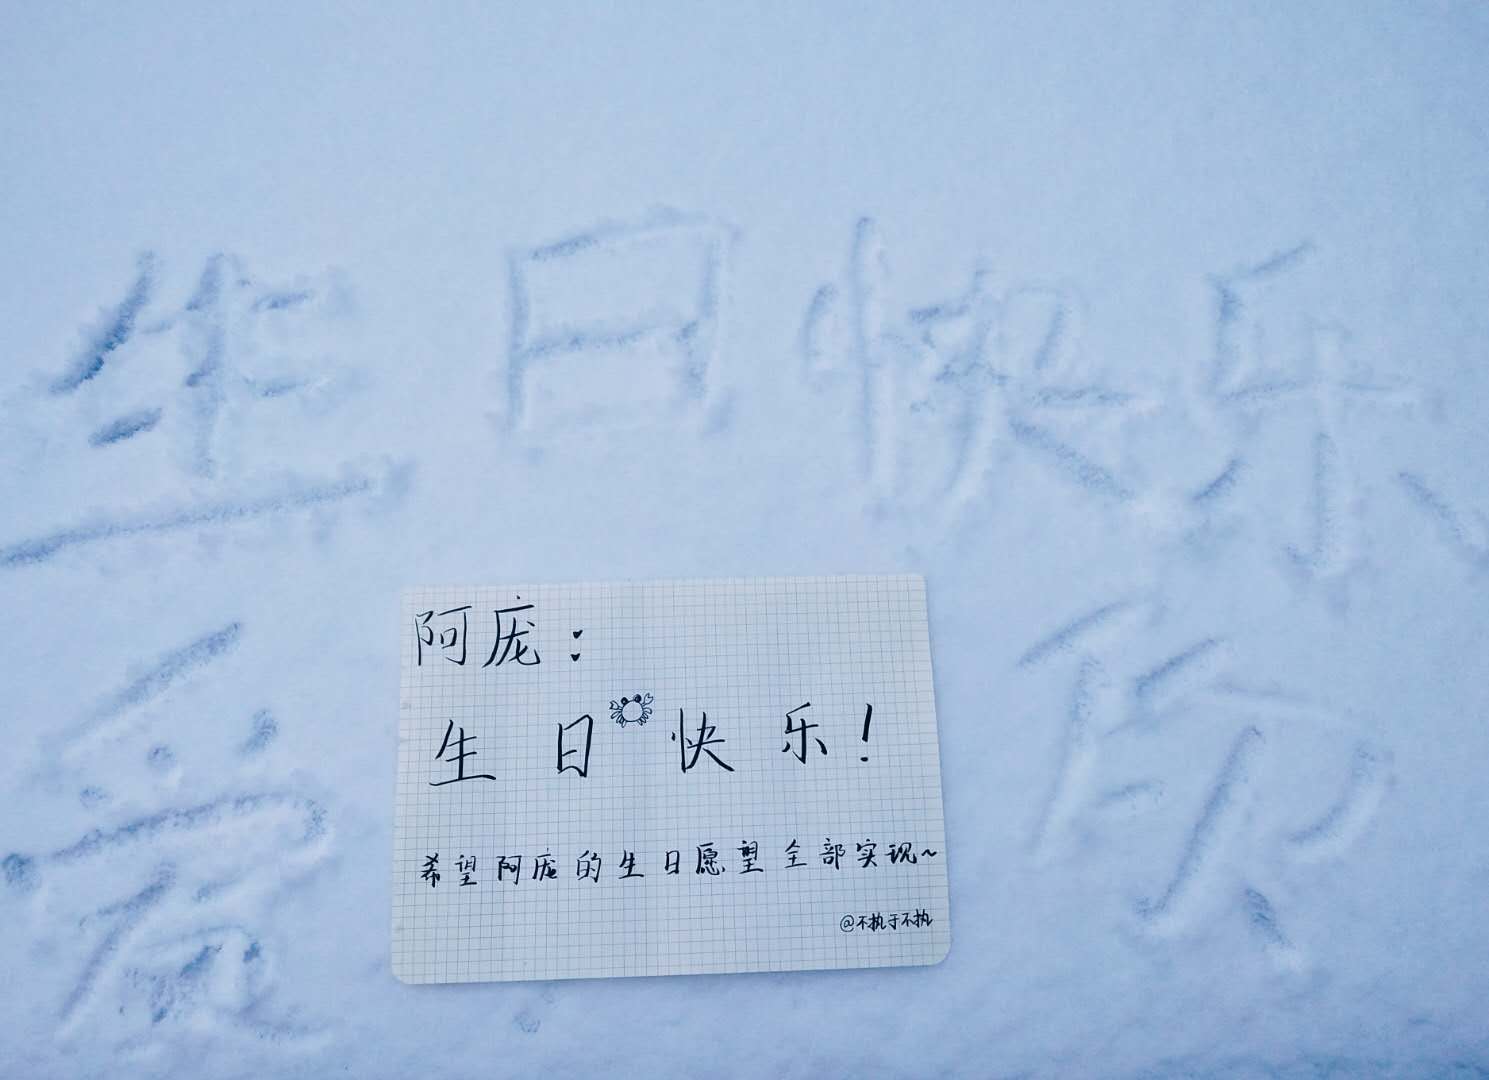 生日快乐
爱
阿庞:
生日快乐!
希望阿庞的生日愿望全部实现~
@不执于不执